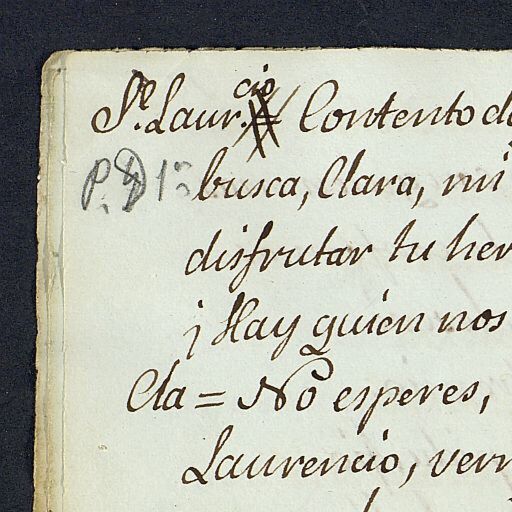 Sr. Laur.cio = Contento de
P.D. 1º busca, Clara, mi
disfrutar tu her
¡Hay quien nos
Cla = No esperes,
Laurencio, verr